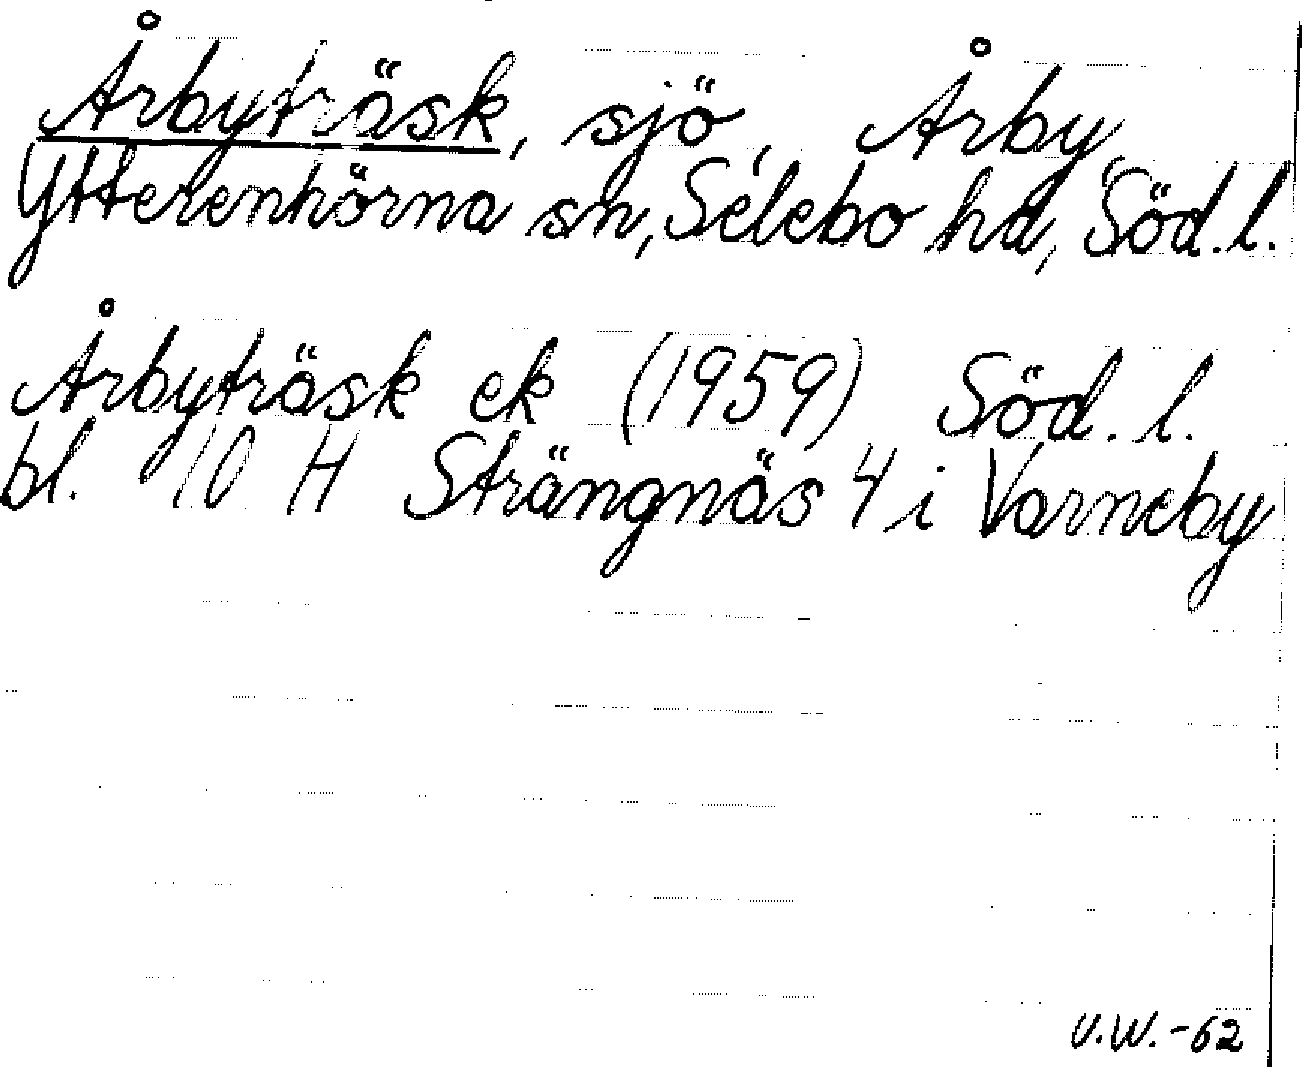 Årbyträsk, sjö, Årby
Ytterenhörna sn, Selebo hd, Söd. l.
Årbyträsk ek (1959) Söd. l.
bl. 10 H Strängnäs 4 i Varneby
U.W. -62